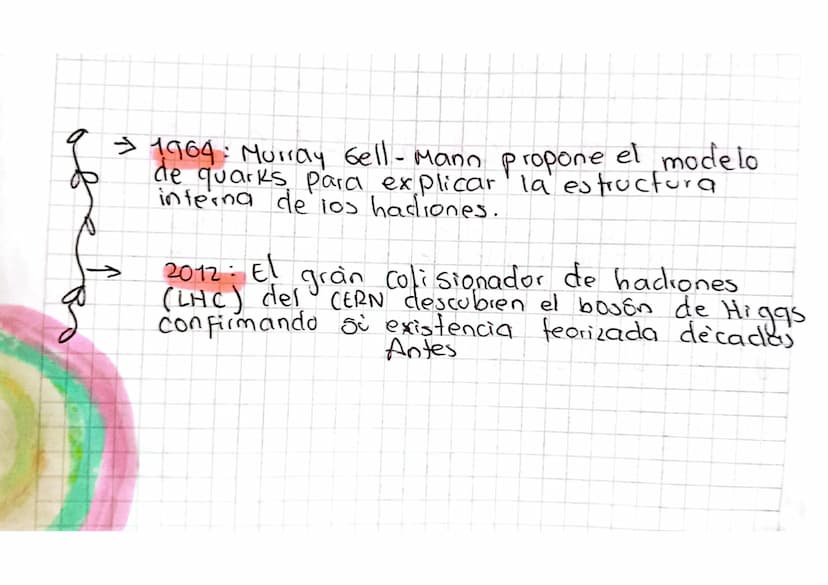 → 1964: Murray Gell-Mann propone el modelo
de quarks para explicar la estructura
interna de los hadrones.
→ 2012: El gran colisionador de hadrones
(LHC) del CERN descubien el bosón de Higgs
confirmando si existencia teorizada décadas
Antes